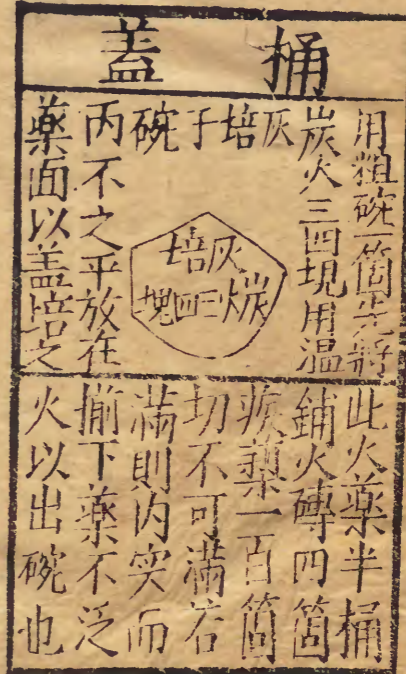 桶蓋
用粗碗一箇先將
炭火三四塊用溫
灰培于碗
丙不之平放在
藥面以蓋培之
灰培
炭火三四塊
此火藥半桶
鋪火磚四箇
蒺藜一百箇
切不可滿若
滿則內实而
揃下藥不泛
火以出碗也